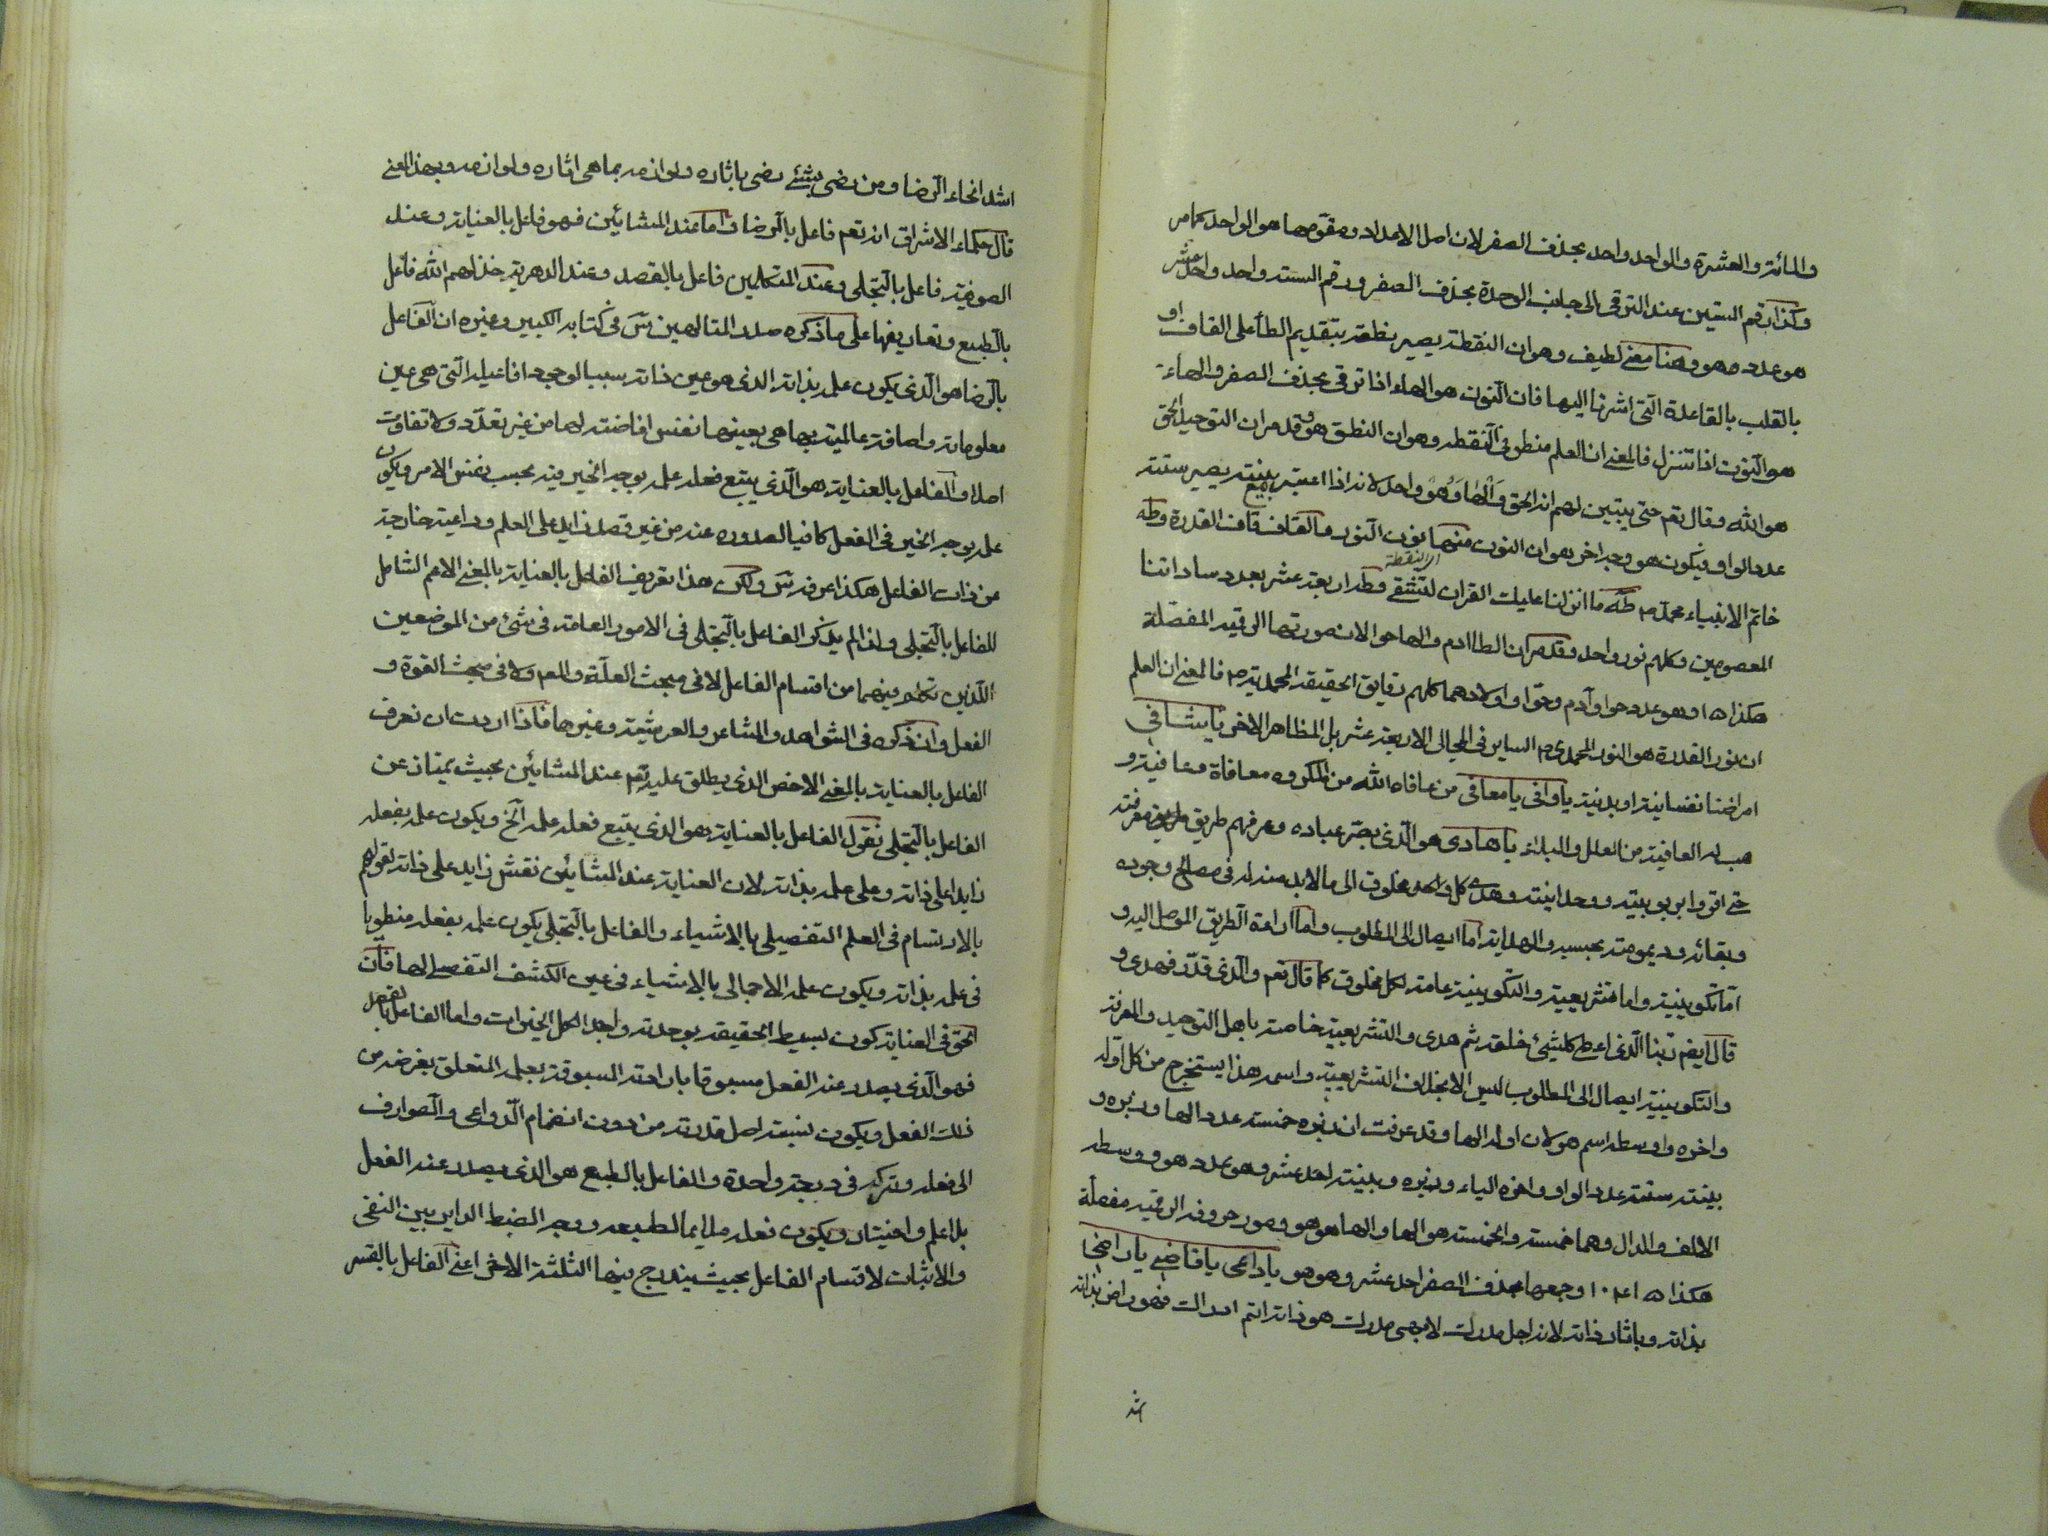 والمائة والعشرة والواحد واحد بحذف الصفر لان اصل الاعداد ومقومها هو الواحد كما مر
وكذا رقم الستين عند الترقى الى جانب الوحدة بحذف الصفر ورقم الستة واحد واحد عشر
هو عدد هو وهنا معنى لطيف وهو ان النقطة يصير نطقة بتقديم الطاء على القاف او
بالقلب بالقاعدة التى اشرنا اليها فان النون هو الهاء اذا ترقى بحذف الصفر والهاء
هو النون اذا تنزل فالمعنى ان العلم منطو فى النقطة وهو ان النطق هو وقد مر ان التوحيد الحق
هو الله وقال تعم حتى يتبين لهم انه الحق والهاء وهو واحد لانه اذا اعتبر بينته يصير ستة
عدد الواو فيكون هو وجه اخر هو ان النون منها نون النور والقاف قاف القدرة وطه
خاتم الانبياء محمد ص طه ما انزلنا عليك القران لتشقى وطه اربعة عشر بعدد ساداتنا
اى النقطة
المعصومين وكلهم نور واحد وقد مر ان الطا ادم والها حوا لان صورتها الرقمية المفصلة
هكذا ١٥ وهو عدد حوا وآدم وحوا واولادهما كلهم رقايق الحقيقة المحمدية ص فالمعنى ان العلم
ان نور القدرة هو النور المحمدى ص الساير فى المجالى الاربعة عشر بل المظاهر الاخرى يا شافى
امراضنا نفسانية او بدنية يا وافى يا معافى من عافاه الله من المكروه معافاة وعافية و
هب له العافية من العلل والبلاء يا هادى هو الذى بصر عباده وعرفهم طريق معرفته
حتى اقروا بربوبيته ووحدانيته وهدى كل مخلوق الى ما لابد منه له فى مصالح وجوده
وبقائه وديمومته بحسبه والهداية اما ايصال الى المطلوب واما اراءة الطريق الموصل اليه و
اما تكوينية واما تشريعية والتكوينية عامة لكل مخلوق كما قال تعم والذى قدر فهدى و
قال ايضم ربنا الذى اعطى كلشئ خلقه ثم هدى والتشريعية خاصة باهل التوحيد والمعرفة
والتكوينية ايصال الى المطلوب ليس الا بخلاف التشريعية واسم هذا يستخرج من كل اوله
واخره واوسطه اسم هو لان اوله الها وقد عرفت ان زبره خمسة عدد الها وزبره و
بينته ستة عدد الواو واخره الياء وزبره وبينته احد عشر وهو عدد هو ووسطه
الالف والدال وهما خمسة والخمسة هو الها والها هو هو وصور حروفه الرقمية مفصلة
هكذا ٥ ١ ٤ ١٠ وجمعها بحذف الصفر احد عشر وهو هو يا داعى يا قاضى يا راضيا
بذاته وباثار ذاته لانه اجل مدرك لابهى مدرك هو ذاته اتم ادراك فهو راض بذاته
اشد
اشد انحاء الرضا ومن رضى بشئ رضى باثاره ولوازمه بما هى اثاره ولوازمه وبهذا المعنى
قال حكماء الاشراق انه تعم فاعل بالرضا واما عند المشائين فهو فاعل بالعناية وعند
الصوفية فاعل بالتجلى وعند المتكلمين فاعل بالقصد وعند الدهرية خذلهم الله فاعل
بالطبع وتعاريفها على ما ذكره صدر المتالهين س فى كتابه الكبير وغيره ان الفاعل
بالرضا هو الذى يكون علمه بذاته الذى هو عين ذاته سببا لوجود افاعيله التى هى عين
معلوماته واضافة عالميته بها هى بعينها نفس افاضته لها من غير تعدد ولا تفاوت
اصلا والفاعل بالعناية هو الذى يتبع فعله علمه بوجه الخير فيه بحسب نفس الامر ويكون
علمه بوجه الخير فى الفعل كافيا لصدوره عنه من غير قصد زايد على العلم وداعية خارجة
عن ذات الفاعل هكذا عرفه س ولكن هذا تعريف الفاعل بالعناية بالمعنى الاعم الشامل
للفاعل بالتجلى ولذا لم يذكر الفاعل بالتجلى فى الامور العامة فى شئ من الموضعين
اللذين تكلم فيهما من اقسام الفاعل لا فى مبحث العلة والمع ولا فى مبحث القوة و
الفعل وان ذكره فى الشواهد والمشاعر والعرشية وغيرها فاذا اردت ان تعرف
الفاعل بالعناية بالمعنى الاخص الذى يطلق عليه تعم عند المشائين بحيث يمتاز عن
الفاعل بالتجلى نقول الفاعل بالعناية هو الذى يتبع فعله علمه الخ ويكون علمه بفعله
زايدا على ذاته وعلى علمه بذاته لان العناية عند المشائين نقش زايد على ذاته لقولهم
بالارتسام فى العلم التفصيلى بالاشياء والفاعل بالتجلى يكون علمه بفعله منطويا
فى علمه بذاته ويكون علمه الاجمالى بالاشياء فى عين الكشف التفصيلى لها فان
الحق فى العناية كون بسيط الحقيقة بوحدته واجدا لكل الخيرات واما الفاعل بالقصد
فهو الذى يصدر عنه الفعل مسبوقا بارادته المسبوقة بعلمه المتعلق بغرضه من
ذلك الفعل ويكون نسبة اصل قدرته من دون انضمام الدواعى والصوارف
الى فعله وتركه فى درجة واحدة والفاعل بالطبع هو الذى يصدر عنه الفعل
بلا علم واختيار ويكون فعله ملايما لطبعه ووجه الضبط الداير بين النفى
والاثبات لاقسام الفاعل بحيث يندرج فيها الثلثة الاخرى اعنى الفاعل بالقسر